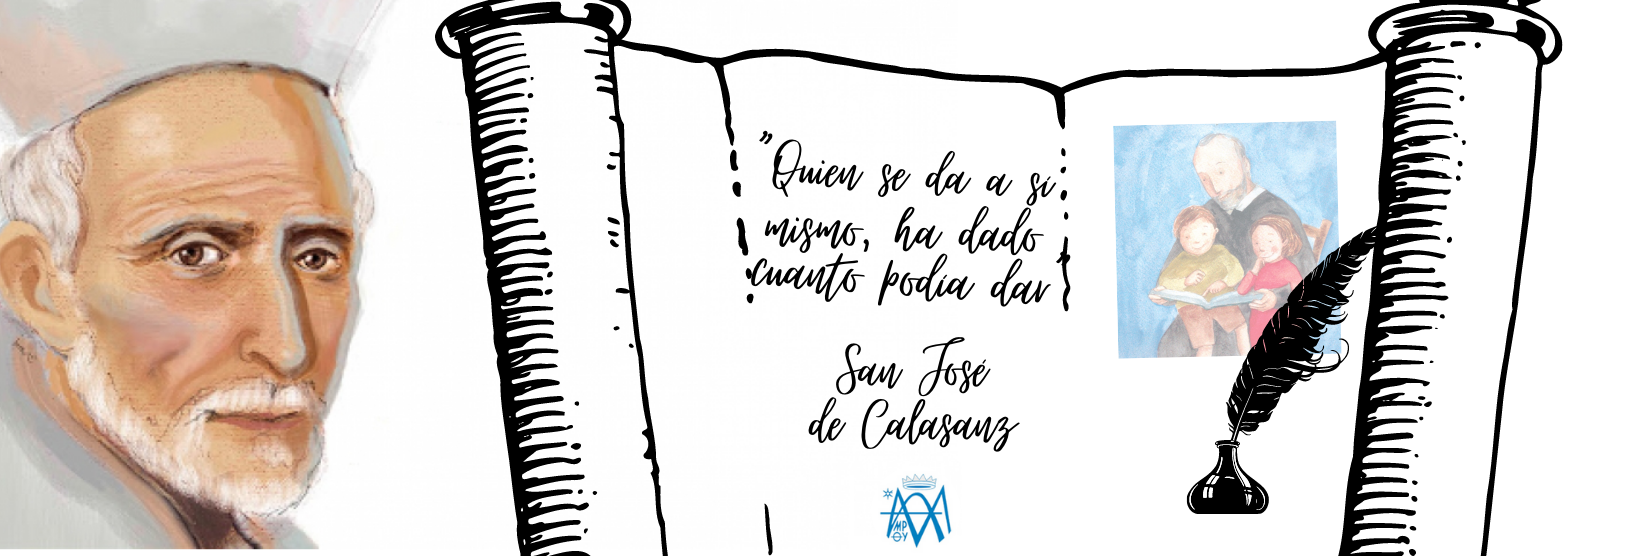 "Quien se da a sí
mismo, ha dado
cuanto podía dar
San José
de Calasanz
MP
ΘY